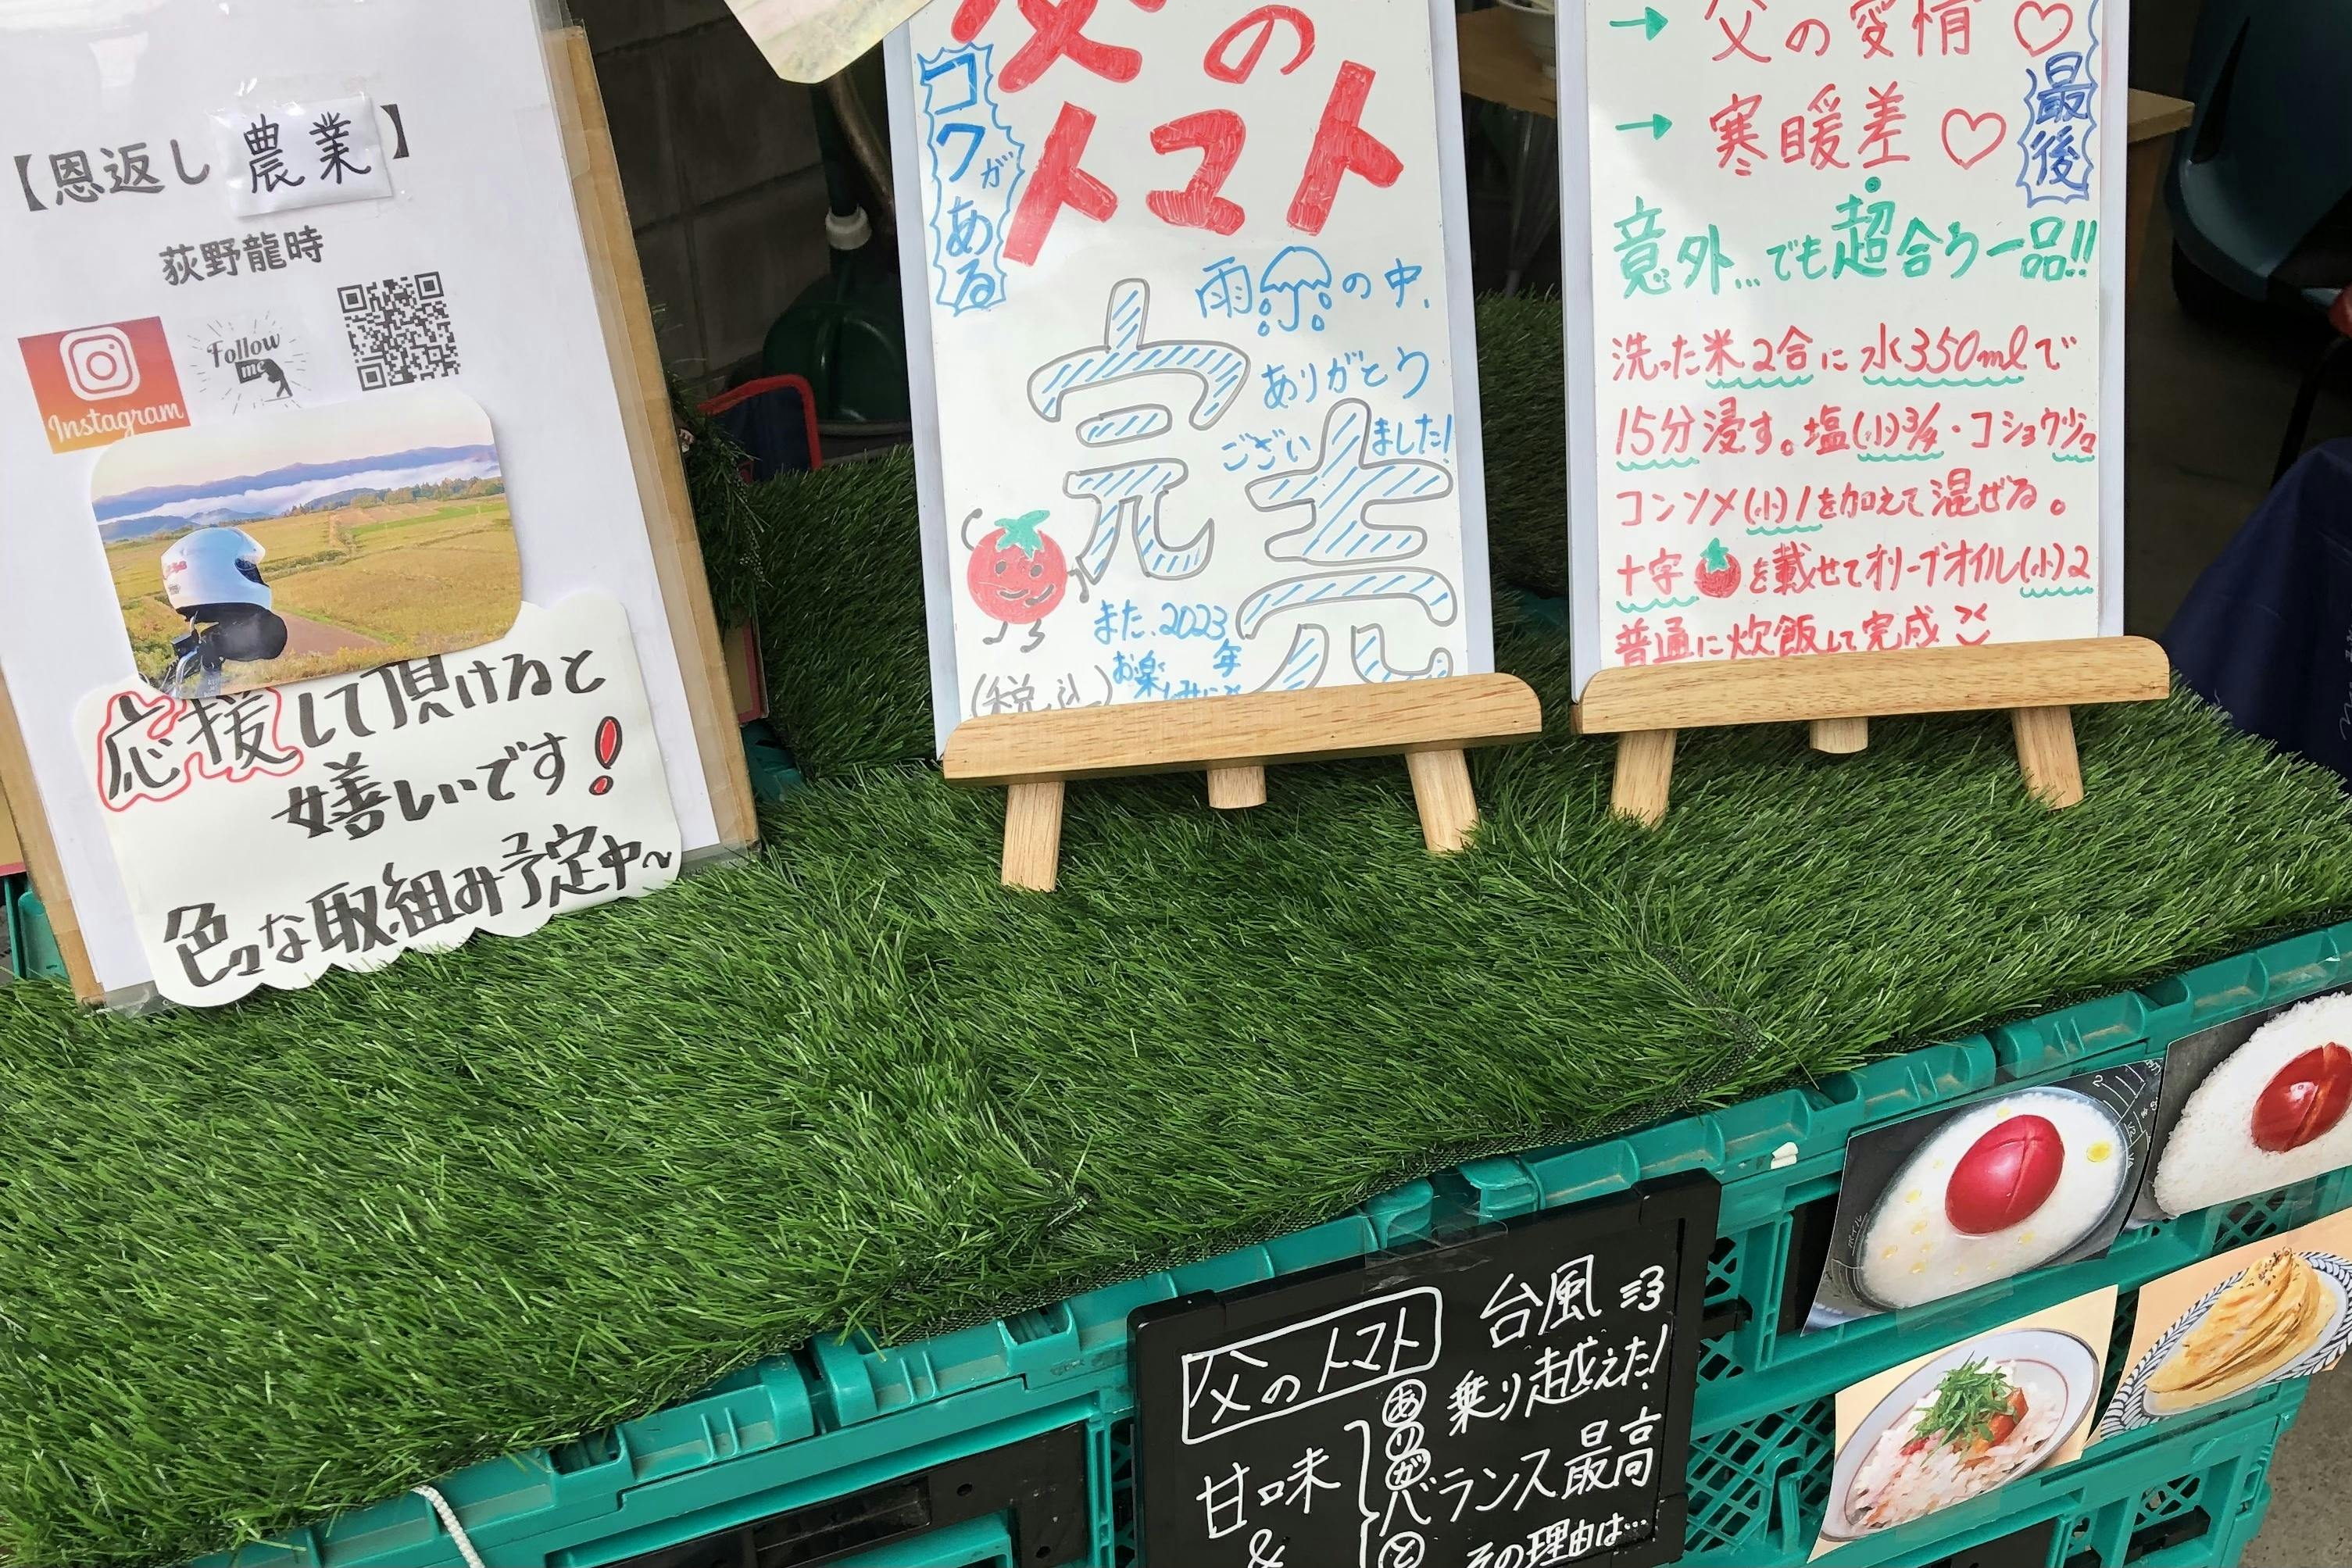 【恩返し 農業】
荻野龍時
Follow
me
Instagram
応援して頂けると
嬉しいです!
色々な取組み予定中~
父の
トマト
コクがある
雨の中、
ありがとう
ございました!
完売
また、2023年
お楽しみに
(税込)
→ 父の愛情♡
→ 寒暖差♡
最後
意外…でも超合う一品!!
洗った米2合に水350mlで
15分浸す。塩(小)3/4・コショウ少々
コンソメ(小)1を加えて混ぜる。
十字🍅を載せてオリーブオイル(小)2
普通に炊飯して完成
父のトマト
台風
乗り越えた!
あのバランス最高
甘味
&
その理由は…